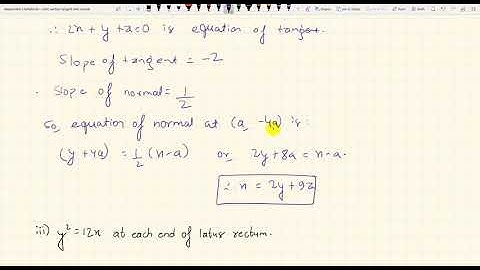 ∴ 2x + y + a = 0 is equation of tangent.
Slope of tangent = -2
Slope of normal = 1/2
So, equation of normal at (a, -4a) is:
(y + 4a) = 1/2 (x - a) or, 2y + 8a = x - a.
∴ x = 2y + 9a
iii) y² = 12x at each end of latus rectum.